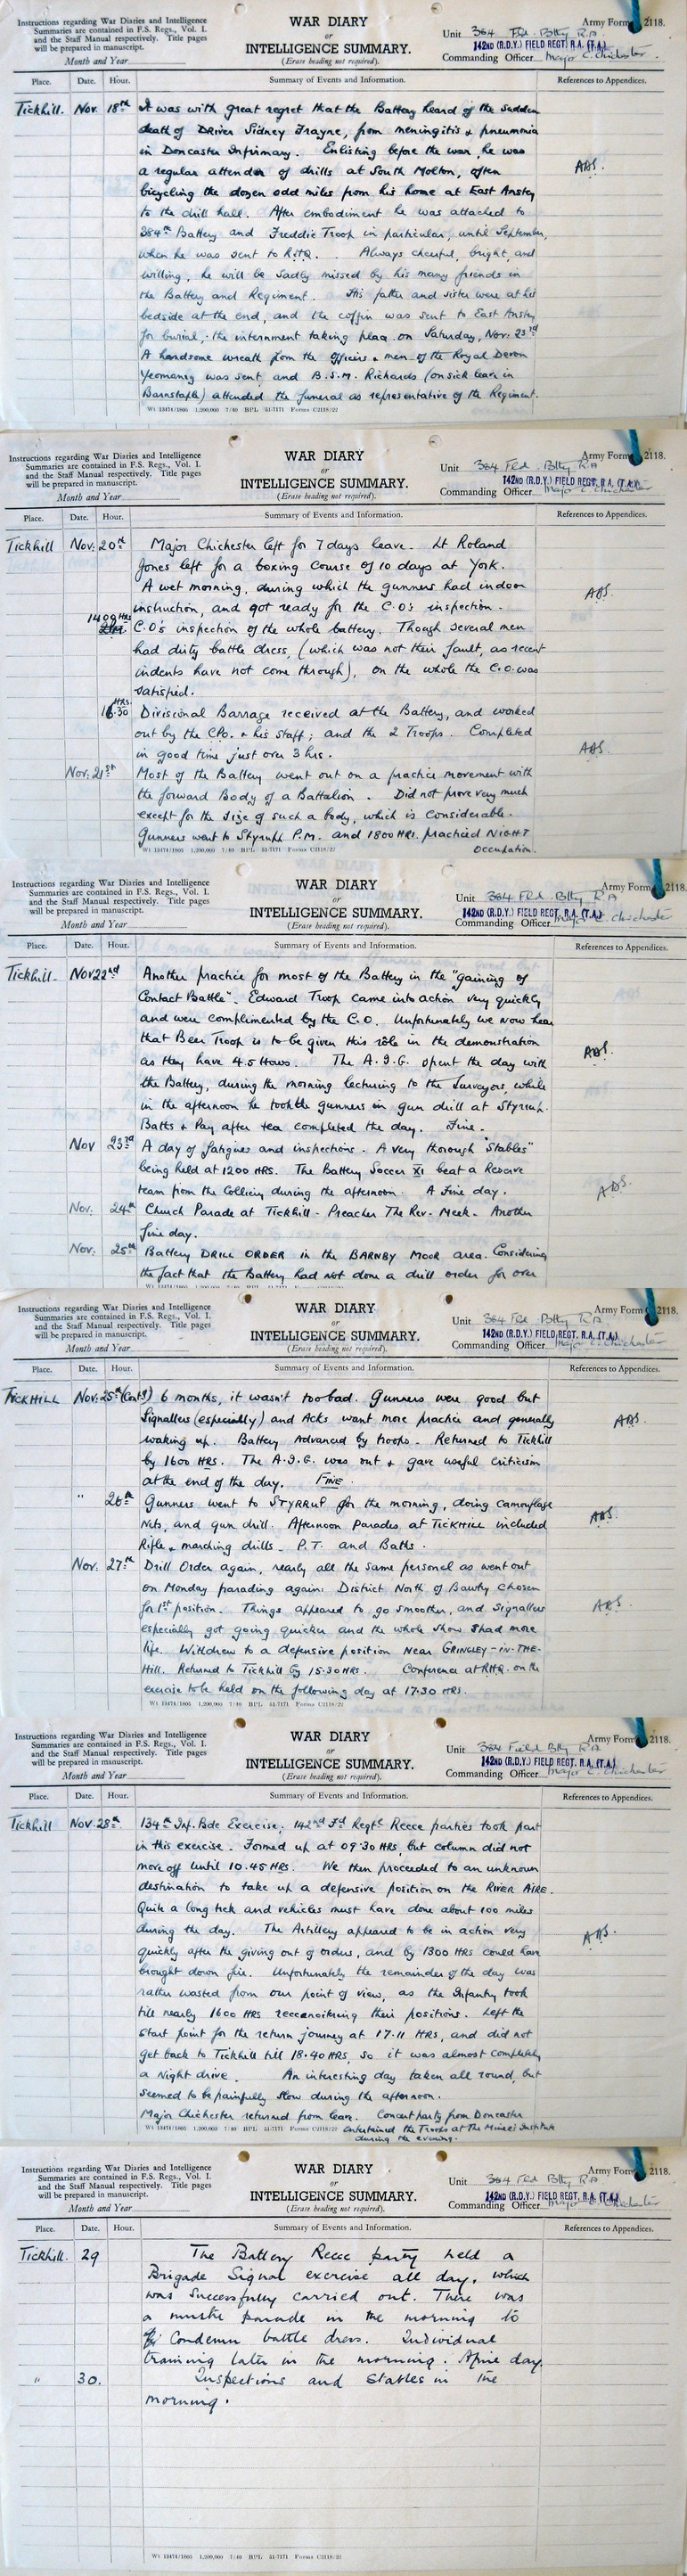 Instructions regarding War Diaries and Intelligence
Summaries are contained in F.S. Regs., Vol. I.
and the Staff Manual respectively. Title pages
will be prepared in manuscript.
Month and Year
WAR DIARY
or
INTELLIGENCE SUMMARY.
(Erase heading not required).
Army Form 2118.
Unit 384 Fld. Btty R.A
142ND (R.D.Y.) FIELD REGT. R.A. (T.A.)
Commanding Officer Major C. Chichester
Place. Date. Hour. Summary of Events and Information. References to Appendices.
Tickhill. Nov. 18th It was with great regret that the Battery heard of the sudden
death of Driver Sidney Frayne, from meningitis & pneumonia
in Doncaster Infirmary. Enlisting before the war, he was
a regular attender of drills at South Molton, often
bicycling the dozen odd miles from his home at East Anstey
to the drill hall. After embodiment he was attached to
384th Battery and Freddie Troop in particular, until September,
when he was sent to RHQ. Always cheerful, bright, and
willing, he will be sadly missed by his many friends in
the Battery and Regiment. His father and sister were at his
bedside at the end, and the coffin was sent to East Anstey
for burial, the internment taking place on Saturday, Nov: 23rd
A handsome wreath from the officers & men of the Royal Devon
Yeomanry was sent, and B.S.M. Richards (on sick leave in
Barnstaple) attended the funeral as representative of the Regiment.
Wt 13474/1805 1,200,000 7/40 BPL 51-7171 Forms C2118/22
Instructions regarding War Diaries and Intelligence
Summaries are contained in F.S. Regs., Vol. I.
and the Staff Manual respectively. Title pages
will be prepared in manuscript.
Month and Year
WAR DIARY
or
INTELLIGENCE SUMMARY.
(Erase heading not required).
Army Form 2118.
Unit 384 Fld. Btty R.A
142ND (R.D.Y.) FIELD REGT. R.A. (T.A.)
Commanding Officer Major C. Chichester
Place. Date. Hour. Summary of Events and Information. References to Appendices.
Tickhill Nov: 20th Major Chichester left for 7 days leave. Lt Roland
Jones left for a boxing course of 10 days at York.
A wet morning, during which the gunners had indoor
instruction, and got ready for the C.O's inspection.
1400 HRS C.O's inspection of the whole battery. Though several men
had dirty battle dress, (which was not their fault, as recent
indents have not come through), on the whole the C.O. was
satisfied.
16.30 HRS. Divisional Barrage received at the Battery, and worked
out by the CPO. & his staff; and the 2 Troops. Completed
in good time just over 3 hrs.
Nov: 21st Most of the Battery went out on a practice movement with
the forward Body of a Battalion. Did not prove very much
except for the size of such a body, which is considerable.
Gunners went to Styrrup P.M. and 1800 HRS. practiced NIGHT
Occupation.
Wt 13474/1805 1,200,000 7/40 BPL 51-7171 Forms C2118/22
Instructions regarding War Diaries and Intelligence
Summaries are contained in F.S. Regs., Vol. I.
and the Staff Manual respectively. Title pages
will be prepared in manuscript.
Month and Year
WAR DIARY
or
INTELLIGENCE SUMMARY.
(Erase heading not required).
Army Form 2118.
Unit 384 Fld Btty R.A
142ND (R.D.Y.) FIELD REGT. R.A. (T.A.)
Commanding Officer Major C. Chichester
Place. Date. Hour. Summary of Events and Information. References to Appendices.
Tickhill. Nov 22nd Another practice for most of the Battery in the "gaining of
Contact Battle". Edward Troop came into action very quickly
and were complimented by the C.O. Unfortunately we now hear
that Beer Troop is to be given this rôle in the demonstration
as they have 4.5 Hows. The A.I.G. spent the day with
the Battery, during the morning lecturing to the Surveyors, while
in the afternoon he took the gunners in gun drill at Styrrup.
Baths & Pay after tea completed the day. Fine.
Nov 23rd A day of fatigues and inspections. A very thorough "Stables"
being held at 1200 HRS. The Battery Soccer XI beat a Reserve
team from the Colliery during the afternoon. A Fine day.
Nov. 24th Church Parade at Tickhill - Preacher The Rev. Meek. Another
fine day.
Nov. 25th Battery DRILL ORDER in the BARNBY MOOR area. Considering
the fact that the Battery had not done a drill order for over
Instructions regarding War Diaries and Intelligence
Summaries are contained in F.S. Regs., Vol. I.
and the Staff Manual respectively. Title pages
will be prepared in manuscript.
Month and Year
WAR DIARY
or
INTELLIGENCE SUMMARY.
(Erase heading not required).
Army Form 2118.
Unit 384 Fld. Btty R.A
142ND (R.D.Y.) FIELD REGT. R.A. (T.A.)
Commanding Officer Major C. Chichester
Place. Date. Hour. Summary of Events and Information. References to Appendices.
TICKHILL Nov: 25th (Cont'd) 6 months, it wasn't too bad. Gunners were good but
Signallers (especially) and Acks want more practice and generally
waking up. Battery Advanced by troops. Returned to Tickhill
by 1600 HRS. The A.I.G. was out & gave useful criticism
at the end of the day. FINE.
" 26th Gunners went to STYRRUP for the morning, doing camouflage
Nets, and gun drill. Afternoon Parades, at TICKHILL included
Rifle & marching drills - P.T. and Baths.
Nov. 27th Drill Order again, nearly all the same personel as went out
on Monday parading again. District North of Bawtry chosen
for 1st position. Things appeared to go smoother, and Signallers
especially got going quicker and the whole show had more
life. Withdrew to a defensive position near GRINGLEY-IN-THE-
Hill. Returned to Tickhill by 15.30 HRS. Conference at RHQ. on the
exercise to be held on the following day at 17.30 HRS.
Wt 13474/1805 1,200,000 7/40 BPL 51-7171 Forms C2118/22
Instructions regarding War Diaries and Intelligence
Summaries are contained in F.S. Regs., Vol. I.
and the Staff Manual respectively. Title pages
will be prepared in manuscript.
Month and Year
WAR DIARY
or
INTELLIGENCE SUMMARY.
(Erase heading not required).
Army Form 2118.
Unit 384 Field Bty R.A
142ND (R.D.Y.) FIELD REGT. R.A. (T.A.)
Commanding Officer Major C. Chichester
Place. Date. Hour. Summary of Events and Information. References to Appendices.
Tickhill Nov. 28th 134th Inf. Bde Exercise. 142nd Fd Regt. Recce parties took part
in this exercise. Formed up at 09.30 HRS, but column did not
move off until 10.45 HRS. We then proceeded to an unknown
destination to take up a defensive position on the RIVER AIRE.
Quite a long trek and vehicles must have done about 100 miles
during the day. The Artillery appeared to be in action very
quickly after the giving out of orders, and by 1300 HRS could have
brought down fire. Unfortunately the remainder of the day was
rather wasted from our point of view, as the Infantry took
till nearly 1600 HRS reccanoitring their positions. Left the
start point for the return journey at 17.11 HRS, and did not
get back to Tickhill till 18.40 HRS, so it was almost completely
a Night drive. An interesting day taken all round, but
seemed to be painfully slow during the afternoon.
Major Chichester returned from leave. Concert party from Doncaster
entertained the Troops at The Miners Institute
during the evening.
Wt 13474/1805 1,200,000 7/40 BPL 51-7171 Forms C2118/22
Instructions regarding War Diaries and Intelligence
Summaries are contained in F.S. Regs., Vol. I.
and the Staff Manual respectively. Title pages
will be prepared in manuscript.
Month and Year
WAR DIARY
or
INTELLIGENCE SUMMARY.
(Erase heading not required).
Army Form 2118.
Unit 384 Fld Btty R.A
142ND (R.D.Y.) FIELD REGT. R.A. (T.A.)
Commanding Officer Major C. Chichester
Place. Date. Hour. Summary of Events and Information. References to Appendices.
Tickhill. 29 The Battery Recce party held a
Brigade Signal exercise all day, which
was successfully carried out. There was
a muste parade in the morning to
Condemn battle dress. Individual
training later in the morning. A fine day.
" 30. Inspections and Stables in the
morning.
Wt 13474/1805 1,200,000 7/40 BPL 51-7171 Forms C2118/22